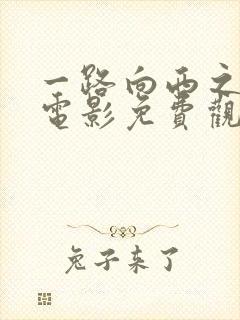 一路向西之
電影免費觀
兔子来了